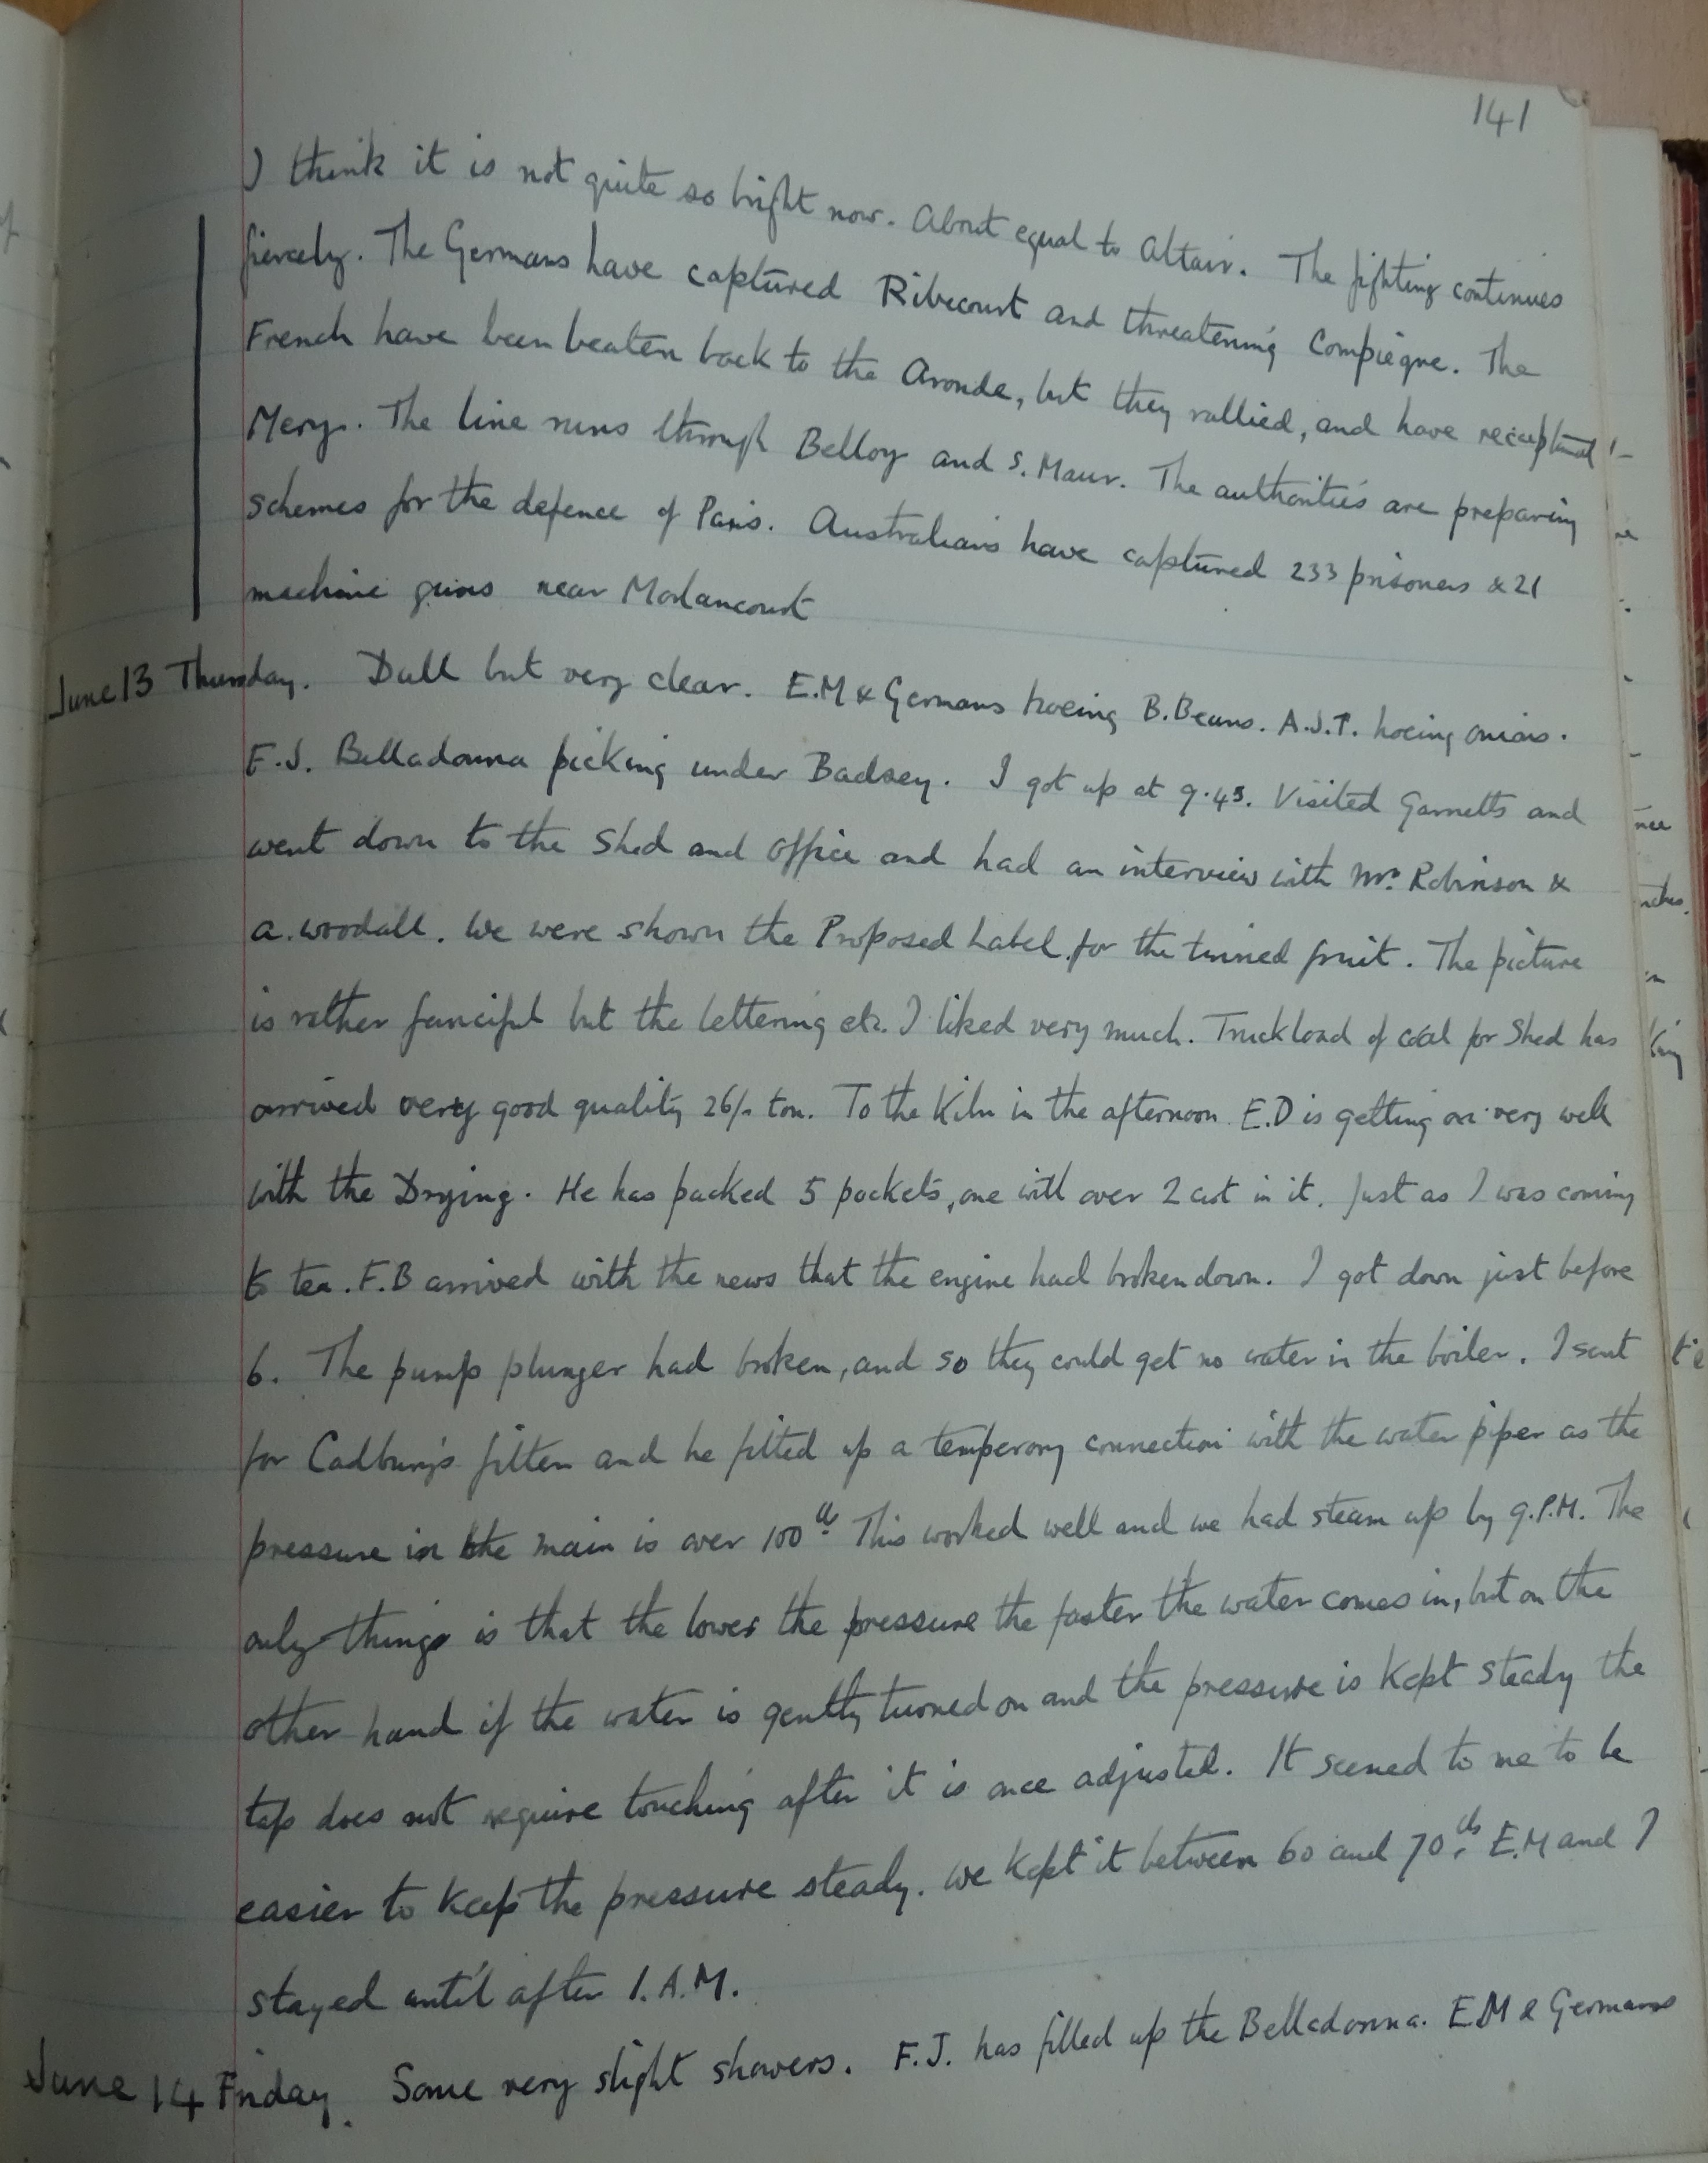 141
I think it is not quite so bright now. About equal to Altair. The fighting continues
fiercely. The Germans have captured Ribecourt and threatening Compiegne. The
French have been beaten back to the Aronde, but they rallied, and have recaptured
Mery. The line runs through Belloy and S. Maur. The authorities are preparing
schemes for the defence of Paris. Australians have captured 233 prisoners & 21
machine guns near Morlancourt
June 13 Thursday. Dull but very clear. E.M & Germans hoeing B.Beans. A.J.T. hoeing onions.
F.J. Belladonna picking under Badsey. I got up at 9.45. Visited Garnetts and
went down to the Shed and Office and had an interview with Mr. Robinson &
A. Woodall. We were shown the Proposed Label for the tinned fruit. The picture
is rather fanciful but the lettering etc. I liked very much. Truckload of coal for Shed has
arrived very good quality 26/- ton. To the Kiln in the afternoon E.D is getting on very well
with the Drying. He has packed 5 pockets, one with over 2 cwt in it. Just as I was coming
to tea. F.B arrived with the news that the engine had broken down. I got down just before
6. The pump plunger had broken, and so they could get no water in the boiler. I sent
for Cadbury's fitter and he fitted up a temperory connection with the water pipes as the
pressure in the main is over 100 lb. This worked well and we had steam up by 9.P.M. The
only things is that the lower the pressure the faster the water comes in, but on the
other hand if the water is gently turned on and the pressure is kept steady the
tap does not require touching after it is once adjusted. It seemed to me to be
easier to keep the pressure steady. We kept it between 60 and 70 lbs. E.M and I
stayed until after 1.A.M.
June 14 Friday. Some very slight showers. F.J. has filled up the Belladonna. E.M & Germans